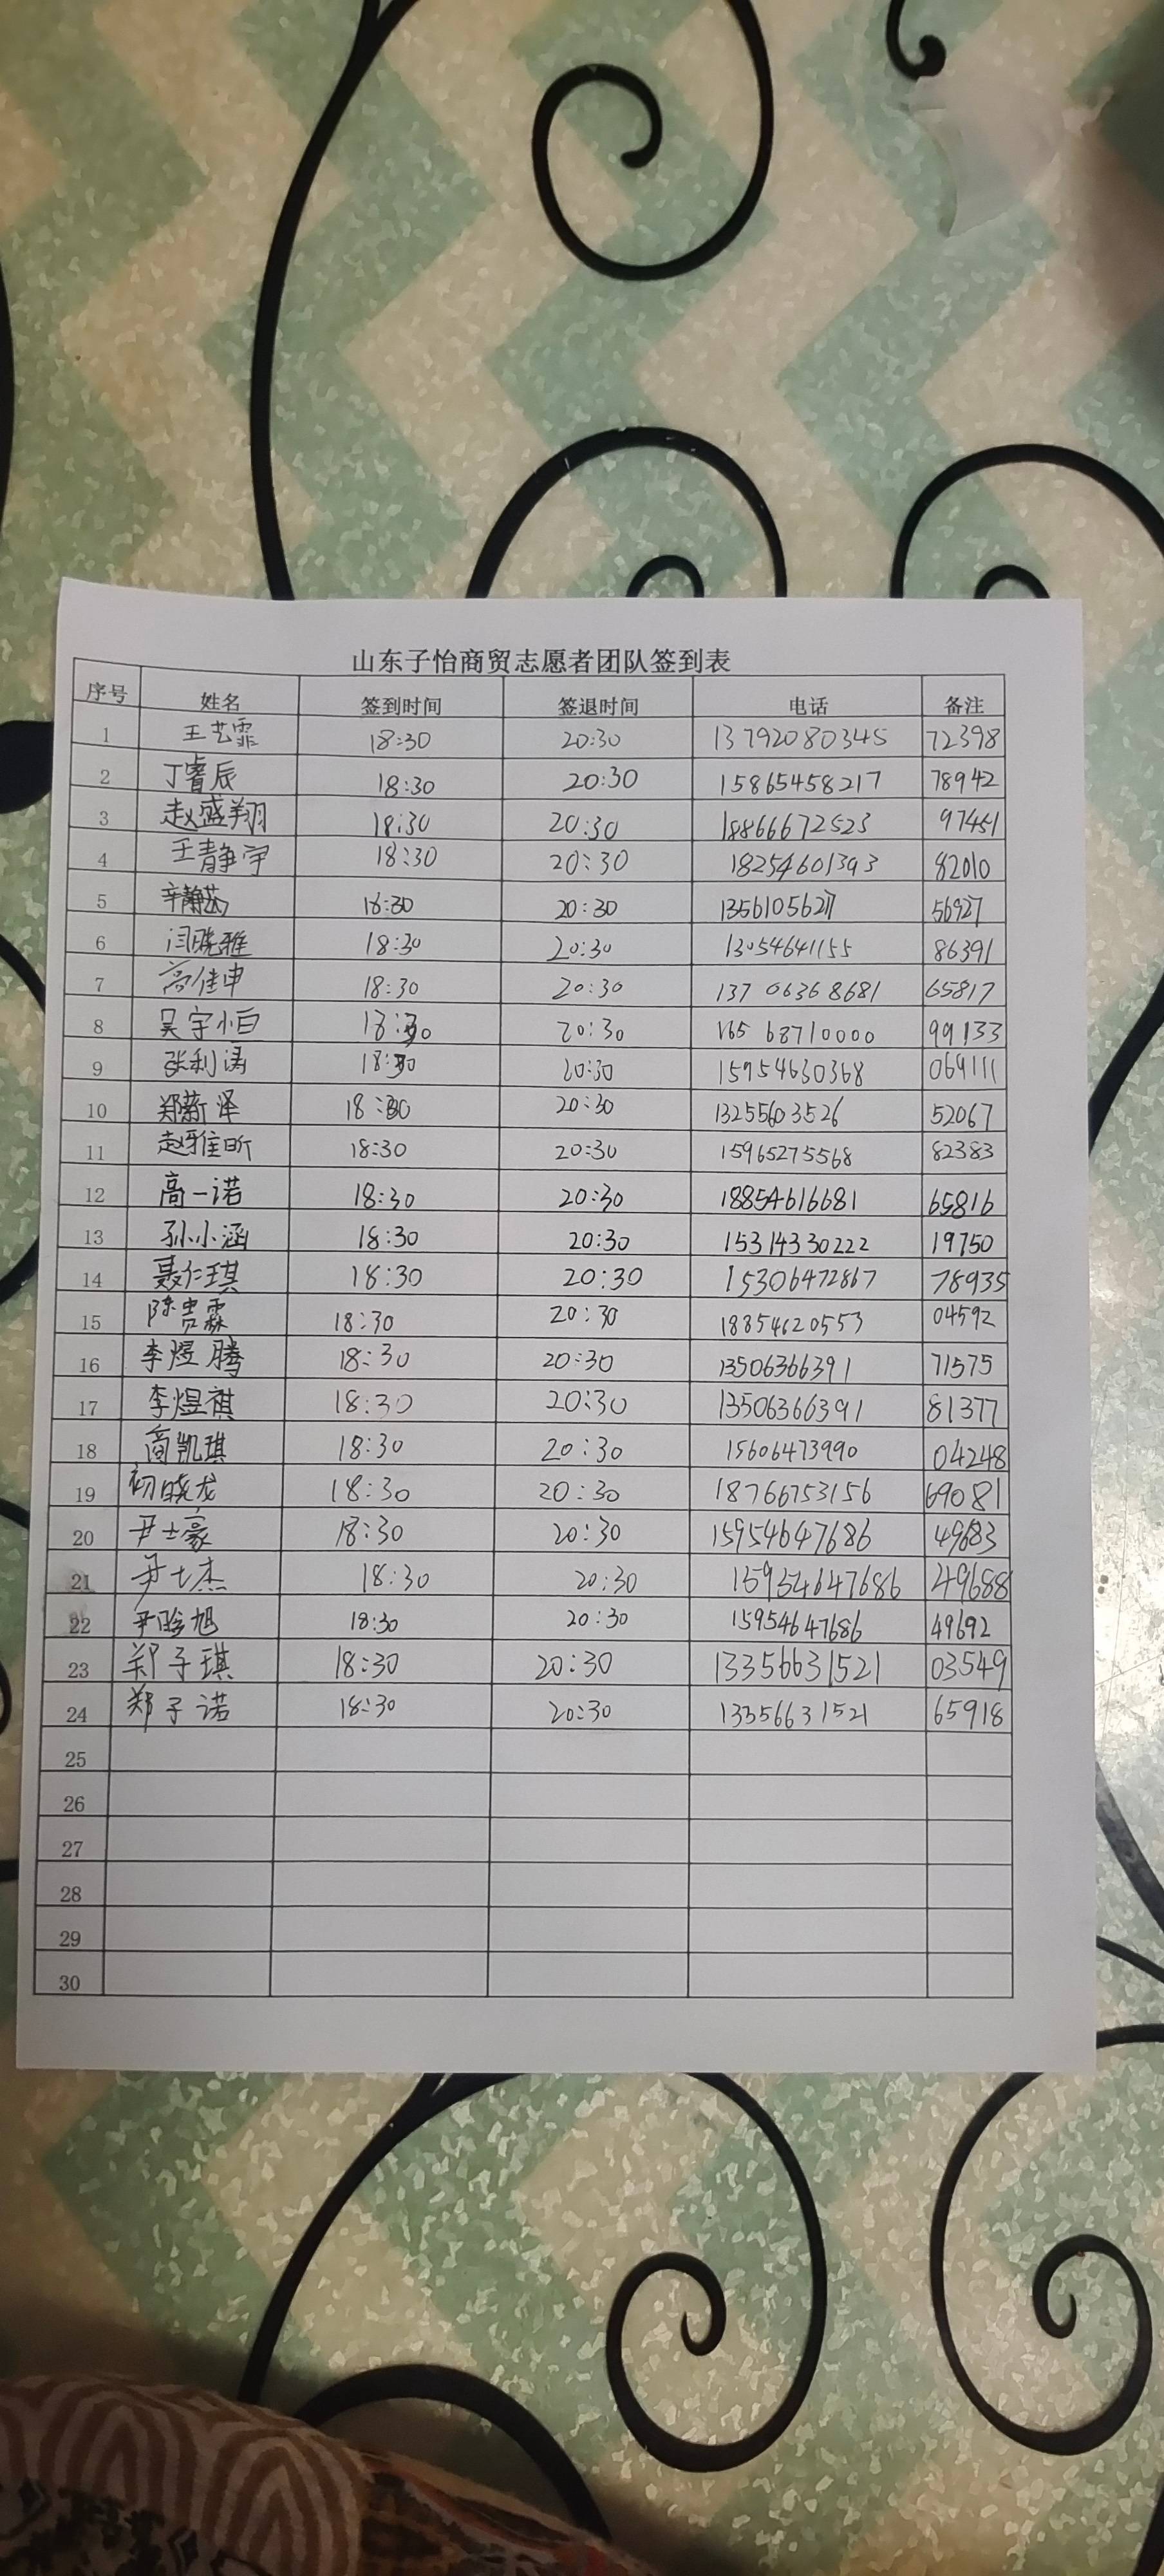 山东子怡商贸志愿者团队签到表
序号 姓名 签到时间 签退时间 电话 备注
1 王艺霏 18:30 20:30 13792080345 72398
2 丁睿辰 18:30 20:30 15865458217 78942
3 赵盛翔 18:30 20:30 18866672523 97451
4 王静宇 18:30 20:30 18254601393 82010
5 辛静茹 18:30 20:30 13561056217 56927
6 闫晓雅 18:30 20:30 13054641155 86391
7 高佳申 18:30 20:30 137 06368681 65817
8 吴宇小白 18:30 20:30 165 68710000 99133
9 张利涛 18:30 20:30 15954630368 069111
10 郑新泽 18:30 20:30 13255603526 52067
11 赵雅昕 18:30 20:30 15965275568 82383
12 高一诺 18:30 20:30 18854616681 65816
13 孙小涵 18:30 20:30 15314330222 19750
14 聂仁琪 18:30 20:30 15306472867 78935
15 陈贵霖 18:30 20:30 18854620553 04592
16 李煜腾 18:30 20:30 13506366391 71575
17 李煜祺 18:30 20:30 13506366391 81377
18 商凯琪 18:30 20:30 15606473990 04248
19 初晓龙 18:30 20:30 18766753156 69081
20 尹士豪 18:30 20:30 15954647686 49683
21 尹士杰 18:30 20:30 15954647686 49688
22 尹晗旭 18:30 20:30 15954647686 49692
23 郑子琪 18:30 20:30 13356631521 03549
24 郑子诺 18:30 20:30 13356631521 65918
25
26
27
28
29
30